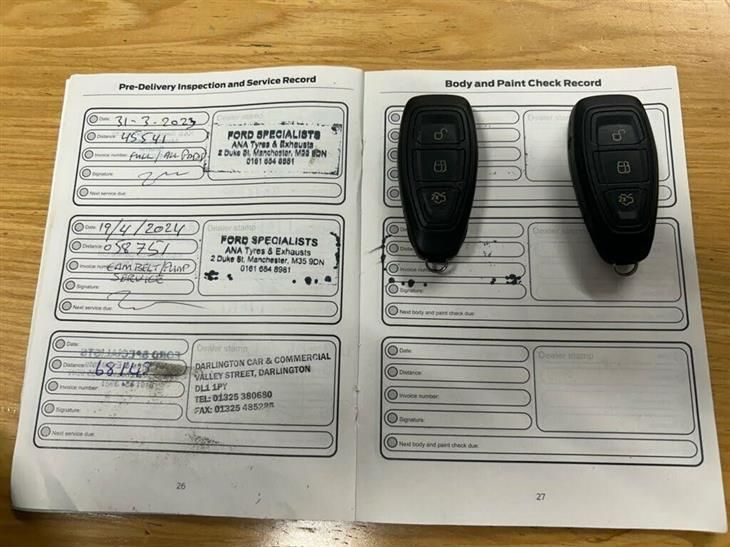 Pre-Delivery Inspection and Service Record
Date: 31-3-2023
Dealer stamp
Distance: 45541
Invoice number: FULL/ALL
Signature:
Next service due:
FORD SPECIALISTS
ANA Tyres & Exhausts
2 Duke St, Manchester, M35 9DN
0161 684 8981
Date: 19/4/2024
Dealer stamp
Distance: 058751
Invoice number: CAMBELT/PUMP
SERVICE
Signature:
Next service due:
FORD SPECIALISTS
ANA Tyres & Exhausts
2 Duke St, Manchester, M35 9DN
0161 684 8981
Date:
Distance: 68148
Invoice number:
Signature:
Next service due:
Dealer stamp
DARLINGTON CAR & COMMERCIAL
VALLEY STREET, DARLINGTON
DL1 1PY
TEL: 01325 380680
FAX: 01325 485285
26
Body and Paint Check Record
Dealer stamp
Invoice number:
Signature:
Next body and paint check due:
Date:
Distance:
Invoice number:
Signature:
Next body and paint check due:
Dealer stamp
27